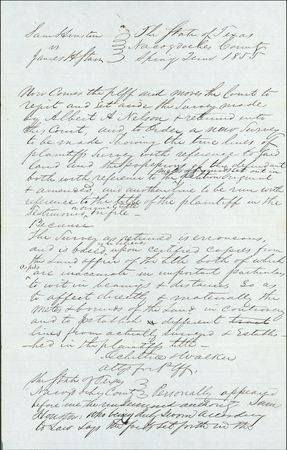 Sam Houston The State of Texas
vs Nacogdoches County
James H Starr Spring Term 1855
Now Comes the plff and moves the Court to
reject and set aside the Survey made
by Albert A Nelson & returned into
this Court, and to Order a new Survey
to be made showing the true lines of
plaintiffs survey with reference to
land and of the defendant
both with reference to the
& amended, and another line to be run with
reference to the of the plaintiff in the
testimony on file
Because
The Survey as returned is erroneous,
and is based upon certified copies from
the Land office of the title both of which
copies
are inaccurate in important particulars
to wit in bearings & distances so as
to affect directly & materially the
metes & bounds of the land in Controversy
and to establish a different
lines from actual survey & establish
hed in the plaintiffs title
Ochiltree & Walker
attys for Plff.
The State of Texas
Nacogdoches County Personally appeared
before me the undersigned authority Sam
Houston, who being duly sworn according
to Law says the facts set forth in the